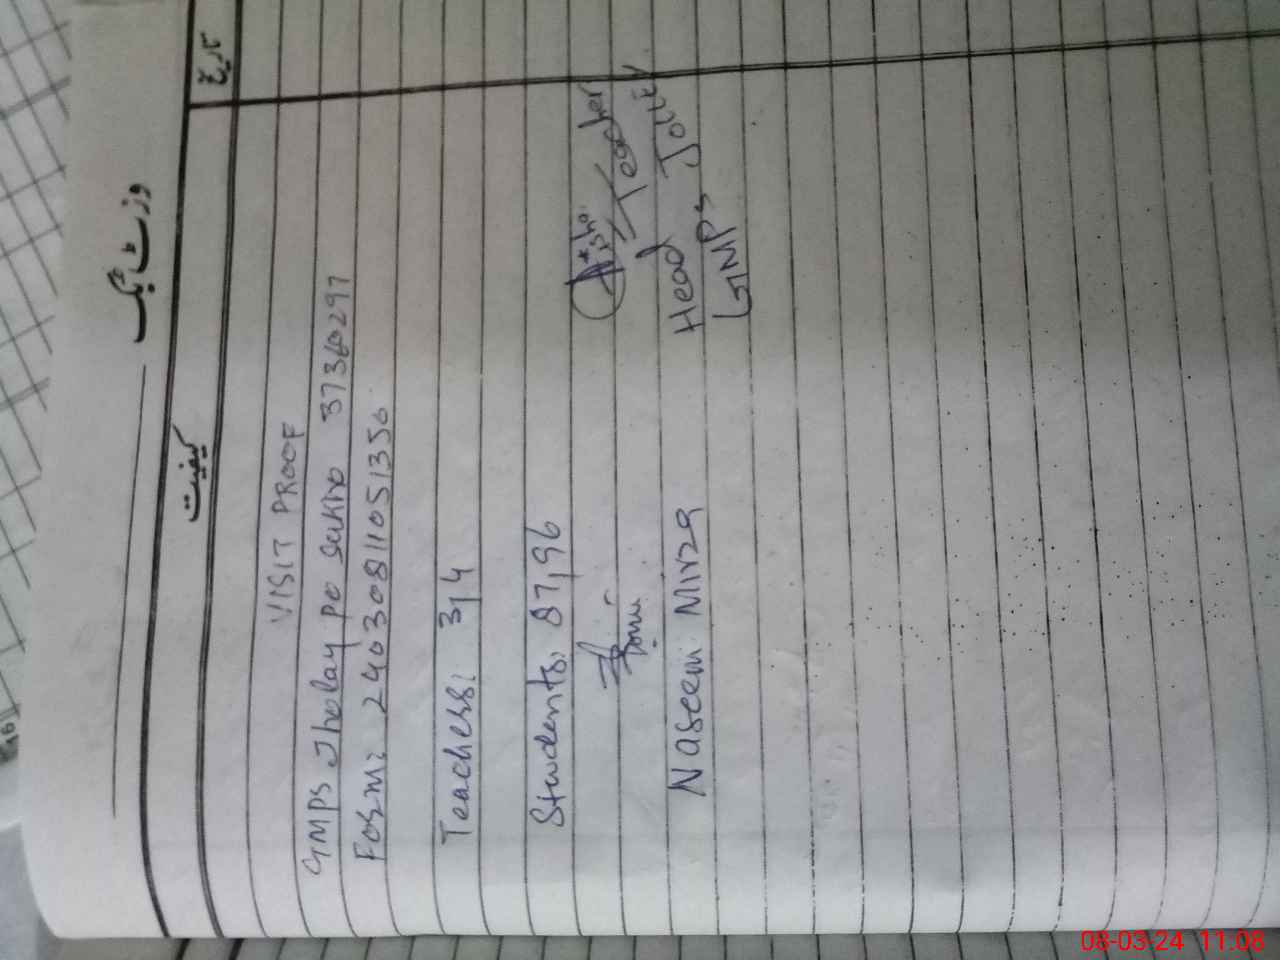 وزٹ بک
تاریخ
کیفیت
VISIT PROOF
GMPS Jholay pe Sukho 37360297
Form: 2403081105 1350
Teachers: 3,4
Students: 87,96
Naseem Mirza
Head Teacher
GMPS
08-03-24 11.08